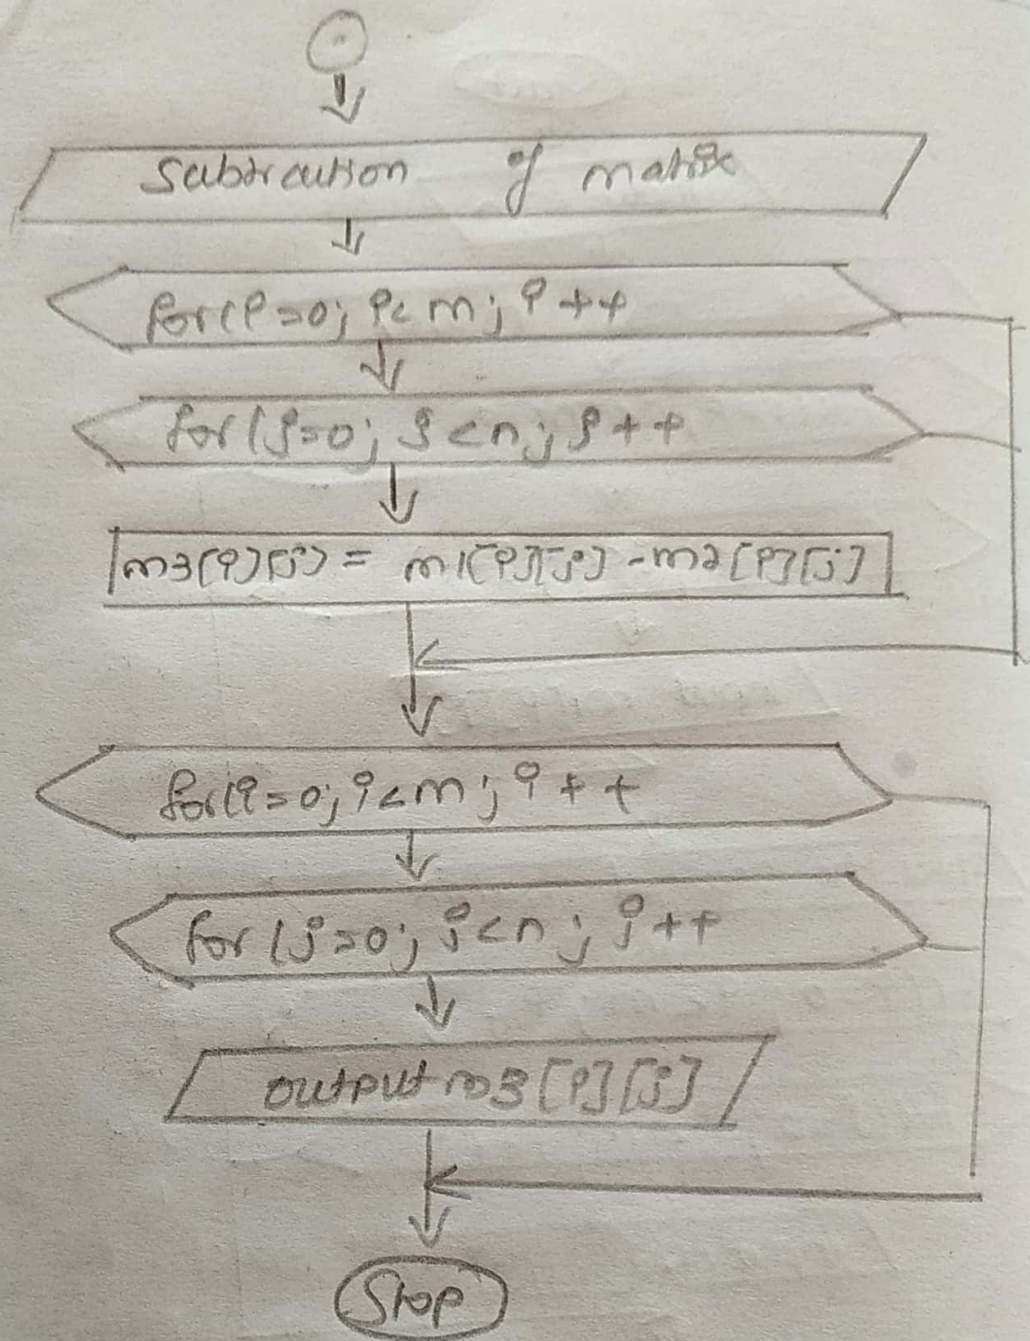 Subtraction of matrix
for(i=0; i<m; i++
for(j=0; j<n; j++
m3[i][j] = m1[i][j] - m2[i][j]
for(i=0; i<m; i++
for(j=0; j<n; j++
output m3[i][j]
Stop